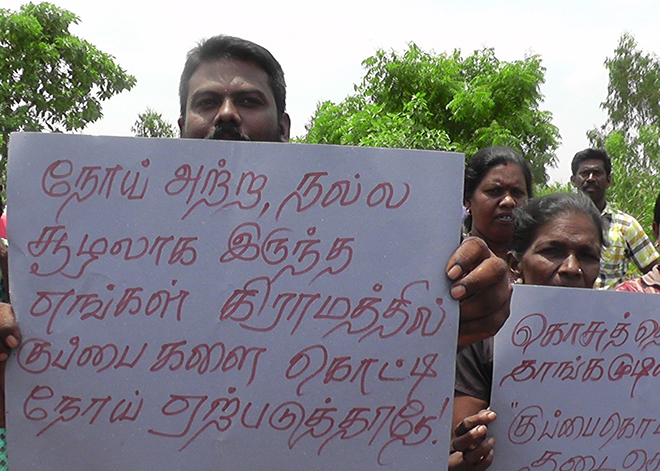 நோய் அற்ற, நல்ல
சூழலாக இருந்த
எங்கள் கிராமத்தில்
குப்பைகளை கொட்டி
நோய் ஏற்படுத்தாதே!
கொசுத்
தாங்கமுடி
"குப்பைகொ